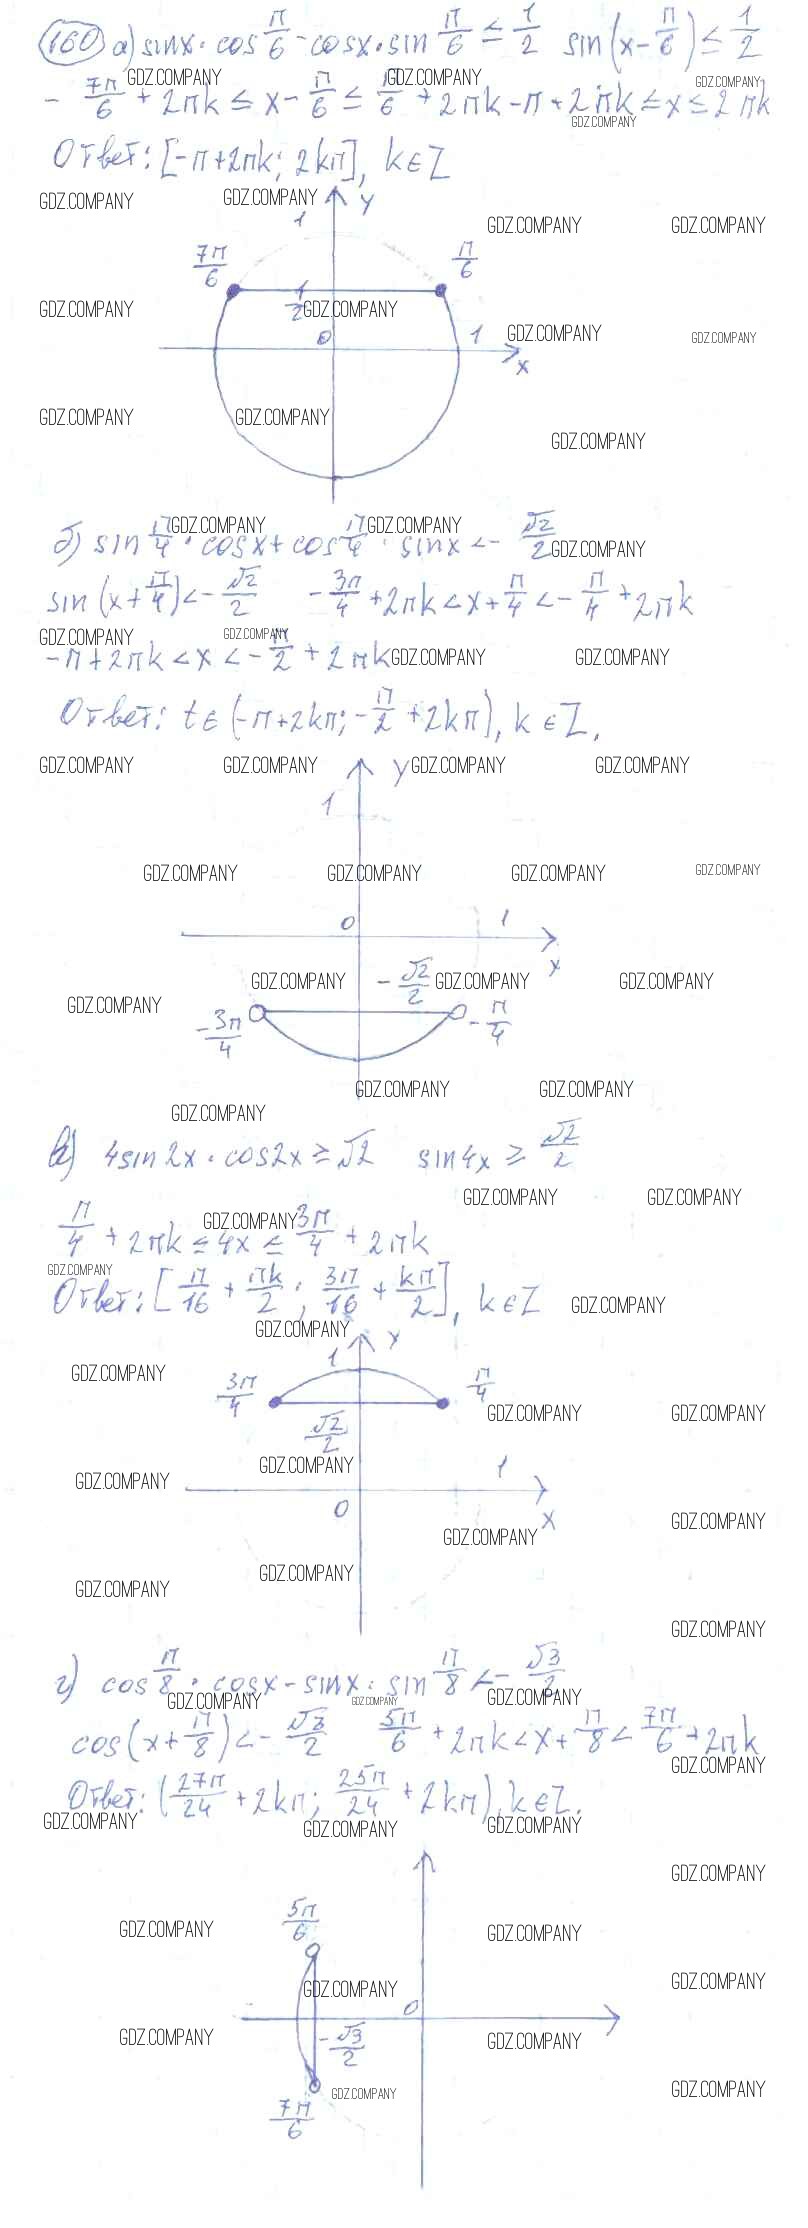 160 а) sinx · cos π/6 - cosx · sin π/6 ≤ 1/2 sin(x - π/6) ≤ 1/2
GDZ.COMPANY GDZ.COMPANY GDZ.COMPANY
- 7π/6 + 2πk ≤ x - π/6 ≤ π/6 + 2πk - π + 2πk ≤ x ≤ 2πk
GDZ.COMPANY
Ответ: [-π+2πk; 2kπ], k∈Z
GDZ.COMPANY GDZ.COMPANY y
1 GDZ.COMPANY GDZ.COMPANY
7π/6 π/6
GDZ.COMPANY 1/2 GDZ.COMPANY
0 1 GDZ.COMPANY GDZ.COMPANY
x
GDZ.COMPANY GDZ.COMPANY
GDZ.COMPANY
GDZ.COMPANY GDZ.COMPANY
б) sin π/4 · cosx + cos π/4 · sinx < - √2/2
GDZ.COMPANY
sin(x + π/4) < - √2/2 - 3π/4 + 2πk < x + π/4 < - π/4 + 2πk
GDZ.COMPANY GDZ.COMPANY
-π + 2πk < x < - π/2 + 2πk GDZ.COMPANY GDZ.COMPANY
Ответ: t∈ (-π+2kπ; - π/2 + 2kπ), k∈Z.
GDZ.COMPANY GDZ.COMPANY y GDZ.COMPANY GDZ.COMPANY
1
GDZ.COMPANY GDZ.COMPANY GDZ.COMPANY GDZ.COMPANY
0 1
x
GDZ.COMPANY - √2/2 GDZ.COMPANY GDZ.COMPANY
GDZ.COMPANY
-3π/4 - π/4
GDZ.COMPANY GDZ.COMPANY
GDZ.COMPANY
в) 4sin2x · cos2x ≥ √2 sin4x ≥ √2/2
GDZ.COMPANY GDZ.COMPANY
GDZ.COMPANY
π/4 + 2πk ≤ 4x ≤ 3π/4 + 2πk
GDZ.COMPANY
Ответ: [π/16 + πk/2; 3π/16 + kπ/2], k∈Z GDZ.COMPANY
GDZ.COMPANY y
1
GDZ.COMPANY
3π/4 π/4
GDZ.COMPANY GDZ.COMPANY
√2/2
GDZ.COMPANY 1
GDZ.COMPANY
0 x
GDZ.COMPANY
GDZ.COMPANY
GDZ.COMPANY
GDZ.COMPANY
GDZ.COMPANY
г) cos π/8 · cosx - sinx · sin π/8 < - √3/2
GDZ.COMPANY GDZ.COMPANY GDZ.COMPANY
cos(x + π/8) < - √3/2 5π/6 + 2πk < x + π/8 < 7π/6 + 2πk
GDZ.COMPANY
Ответ: (27π/24 + 2kπ; 25π/24 + 2kπ), k∈Z.
GDZ.COMPANY GDZ.COMPANY GDZ.COMPANY
GDZ.COMPANY
5π/6
GDZ.COMPANY GDZ.COMPANY
GDZ.COMPANY GDZ.COMPANY
0
GDZ.COMPANY - √3/2 GDZ.COMPANY
GDZ.COMPANY GDZ.COMPANY
7π/6